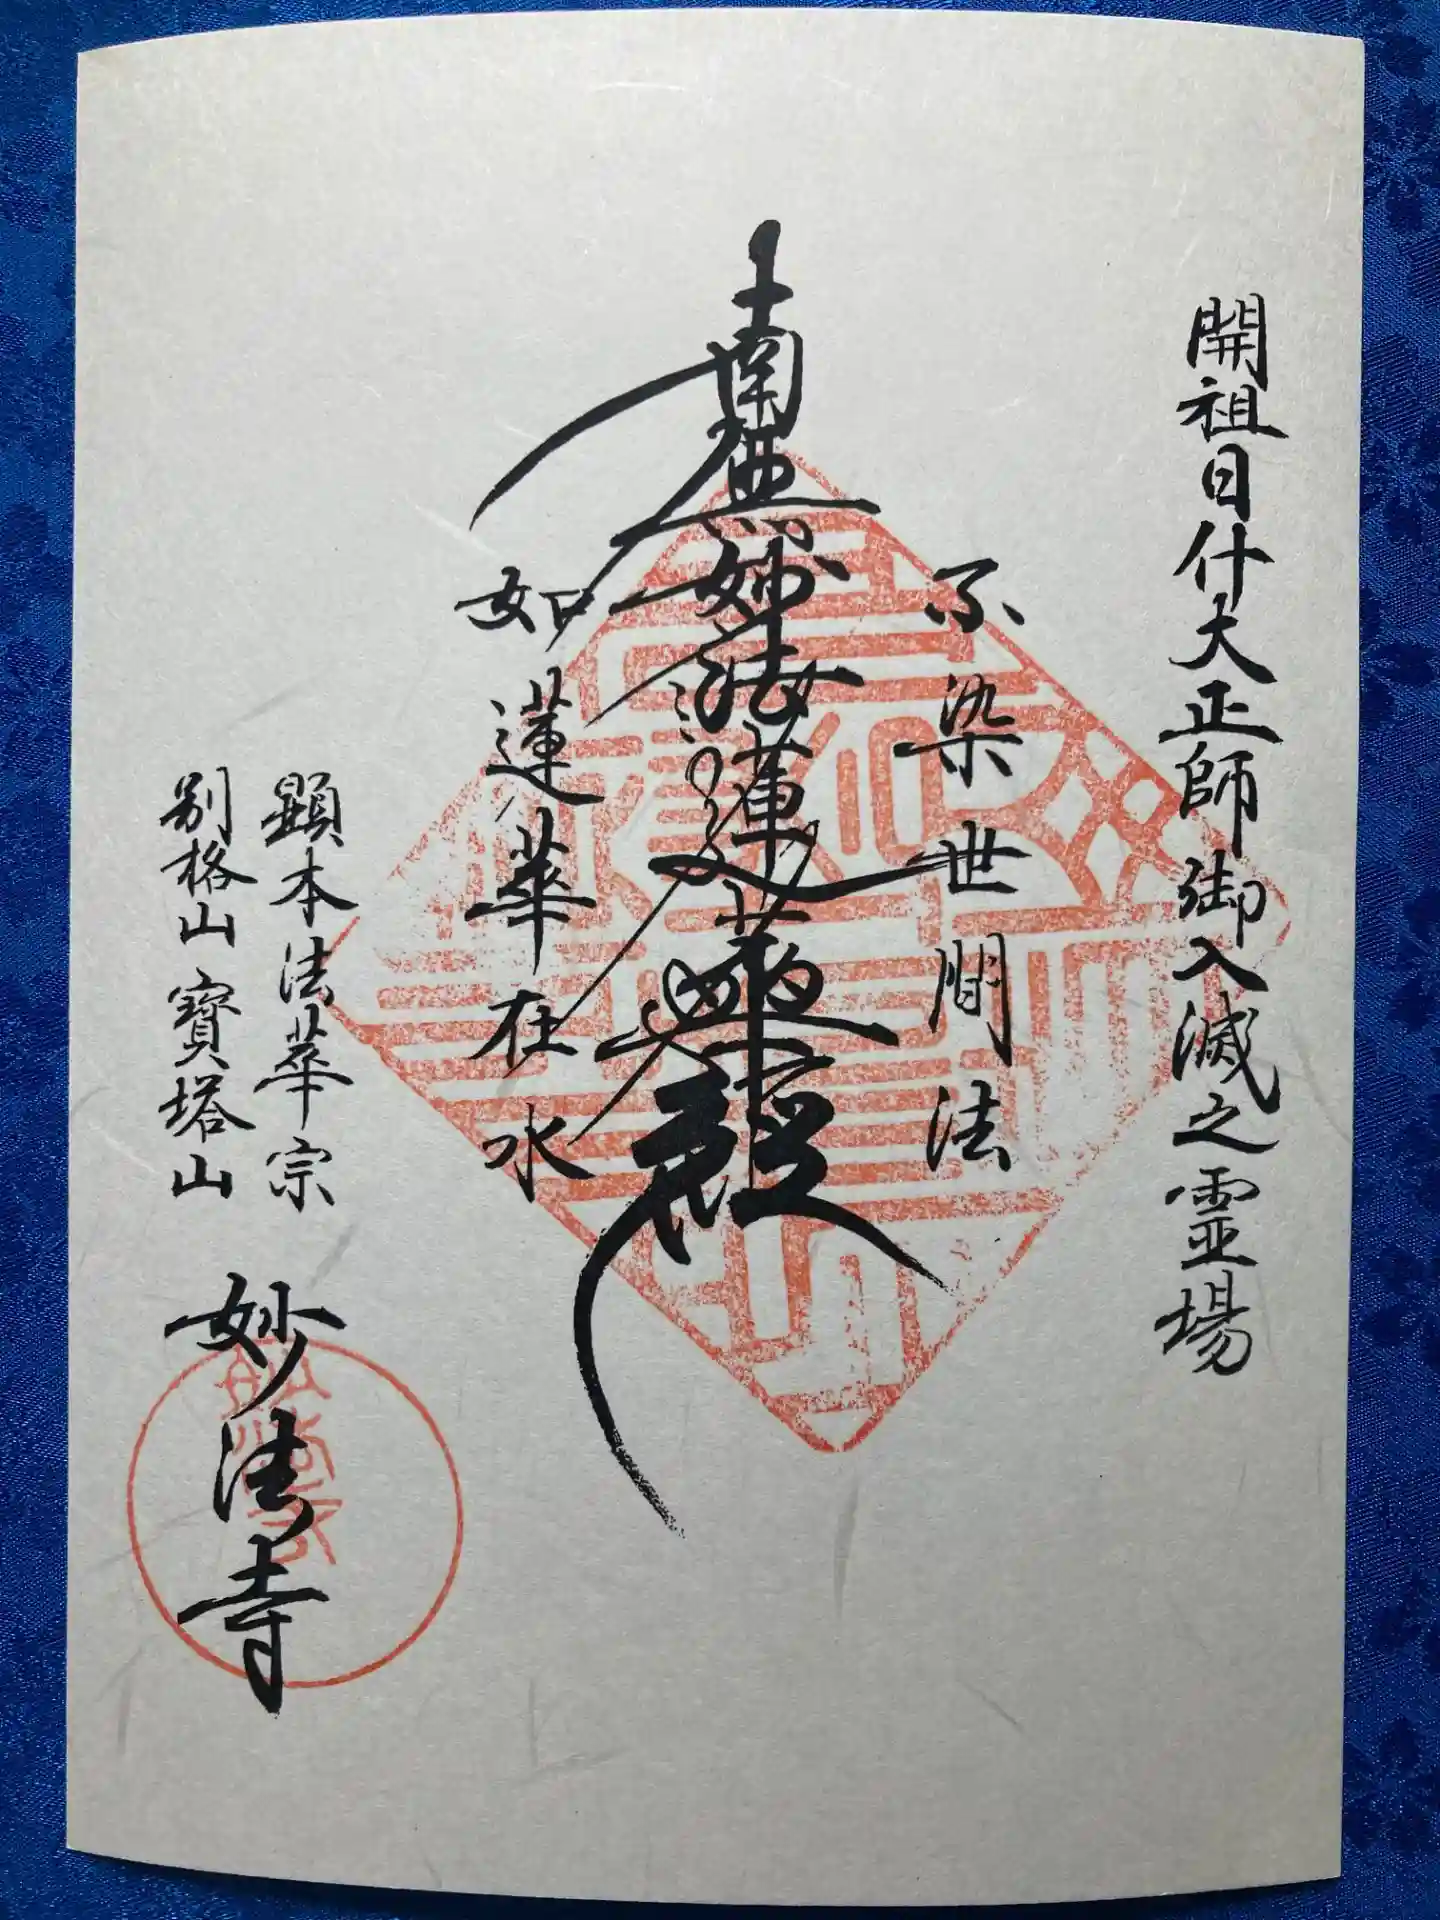 開祖日什大正師御入滅之霊場
不染世間法
南無妙法蓮華経
如蓮華在水
顕本法華宗
別格山寶塔山
妙法寺